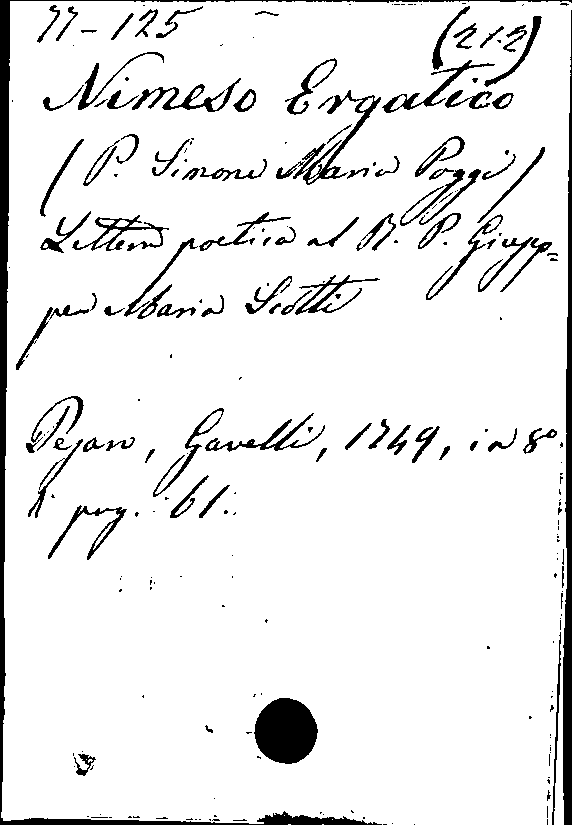 77-125 (21.2)
Nimeso Ergatico
(P. Simone Maria Poggi)
Lettera poetica al R. P. Giusep=
pe Maria Scotti
Pesaro, Gavelli, 1749, in 8º.
di pag. 61.